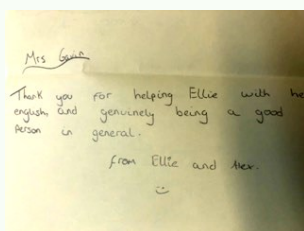 Mrs Gavin
Thank you for helping Ellie with he
english, and genuinely being a good
Person in general.
from Ellie and Alex.